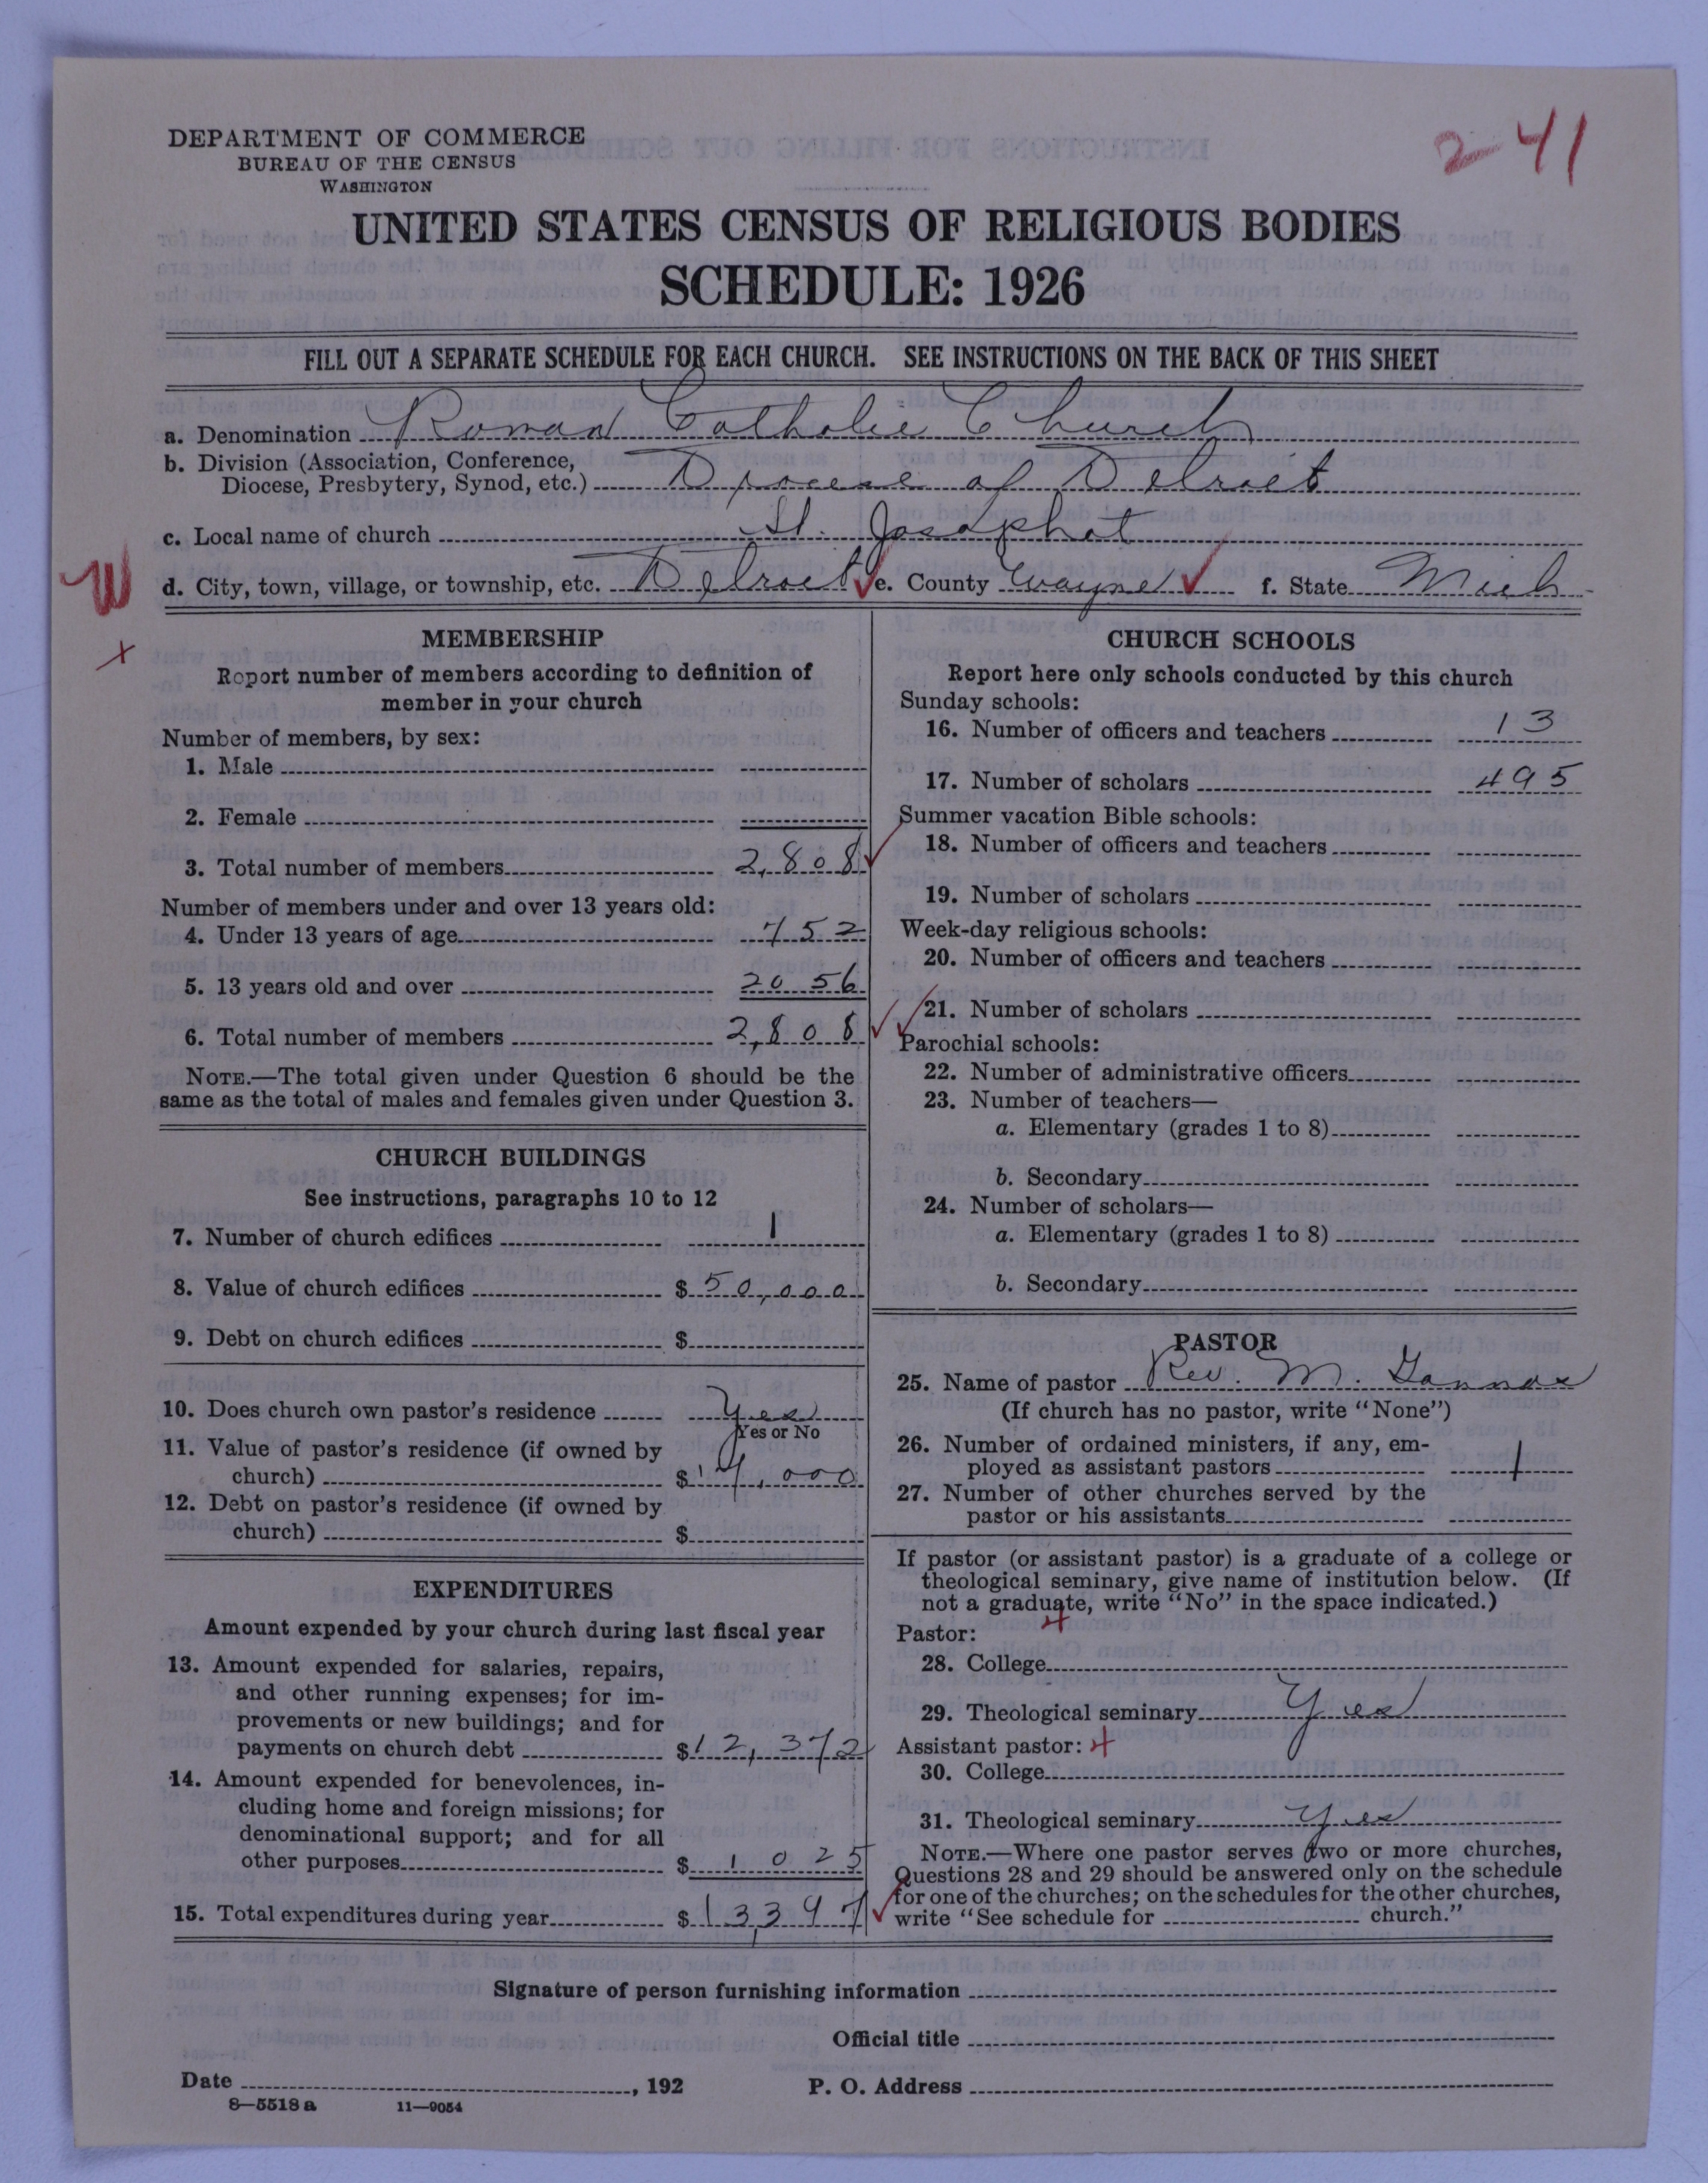 2-41
DEPARTMENT OF COMMERCE
BUREAU OF THE CENSUS
WASHINGTON
UNITED STATES CENSUS OF RELIGIOUS BODIES
SCHEDULE: 1926
FILL OUT A SEPARATE SCHEDULE FOR EACH CHURCH. SEE INSTRUCTIONS ON THE BACK OF THIS SHEET
a. Denomination Roman Catholic Church
b. Division (Association, Conference,
Diocese, Presbytery, Synod, etc.) Diocese of Detroit
c. Local name of church St. Josaphat
W
d. City, town, village, or township, etc. Detroit ✓ e. County Wayne ✓ f. State Mich
x
MEMBERSHIP
Report number of members according to definition of
member in your church
Number of members, by sex:
1. Male
2. Female
3. Total number of members 2,808 ✓
Number of members under and over 13 years old:
4. Under 13 years of age 752
5. 13 years old and over 2056
6. Total number of members 2,808 ✓
NOTE.—The total given under Question 6 should be the
same as the total of males and females given under Question 3.
CHURCH BUILDINGS
See instructions, paragraphs 10 to 12
7. Number of church edifices 1
8. Value of church edifices $ 50,000
9. Debt on church edifices $
10. Does church own pastor's residence Yes
Yes or No
11. Value of pastor's residence (if owned by
church) $ 17,000
12. Debt on pastor's residence (if owned by
church) $
EXPENDITURES
Amount expended by your church during last fiscal year
13. Amount expended for salaries, repairs,
and other running expenses; for im-
provements or new buildings; and for
payments on church debt $ 12,372
14. Amount expended for benevolences, in-
cluding home and foreign missions; for
denominational support; and for all
other purposes $ 1025
15. Total expenditures during year $ 13,397 ✓
CHURCH SCHOOLS
Report here only schools conducted by this church
Sunday schools:
16. Number of officers and teachers 13
17. Number of scholars 495
Summer vacation Bible schools:
18. Number of officers and teachers
19. Number of scholars
Week-day religious schools:
20. Number of officers and teachers
✓ 21. Number of scholars
Parochial schools:
22. Number of administrative officers
23. Number of teachers—
a. Elementary (grades 1 to 8)
b. Secondary
24. Number of scholars—
a. Elementary (grades 1 to 8)
b. Secondary
PASTOR
25. Name of pastor Rev. M.
(If church has no pastor, write "None")
26. Number of ordained ministers, if any, em-
ployed as assistant pastors 1
27. Number of other churches served by the
pastor or his assistants
If pastor (or assistant pastor) is a graduate of a college or
theological seminary, give name of institution below. (If
not a graduate, write "No" in the space indicated.)
Pastor: 4
28. College
29. Theological seminary Yes
Assistant pastor: 4
30. College
31. Theological seminary Yes
NOTE.—Where one pastor serves two or more churches,
Questions 28 and 29 should be answered only on the schedule
for one of the churches; on the schedules for the other churches,
write "See schedule for church."
Signature of person furnishing information
Official title
Date , 192 P. O. Address
8—5518 a 11—9054